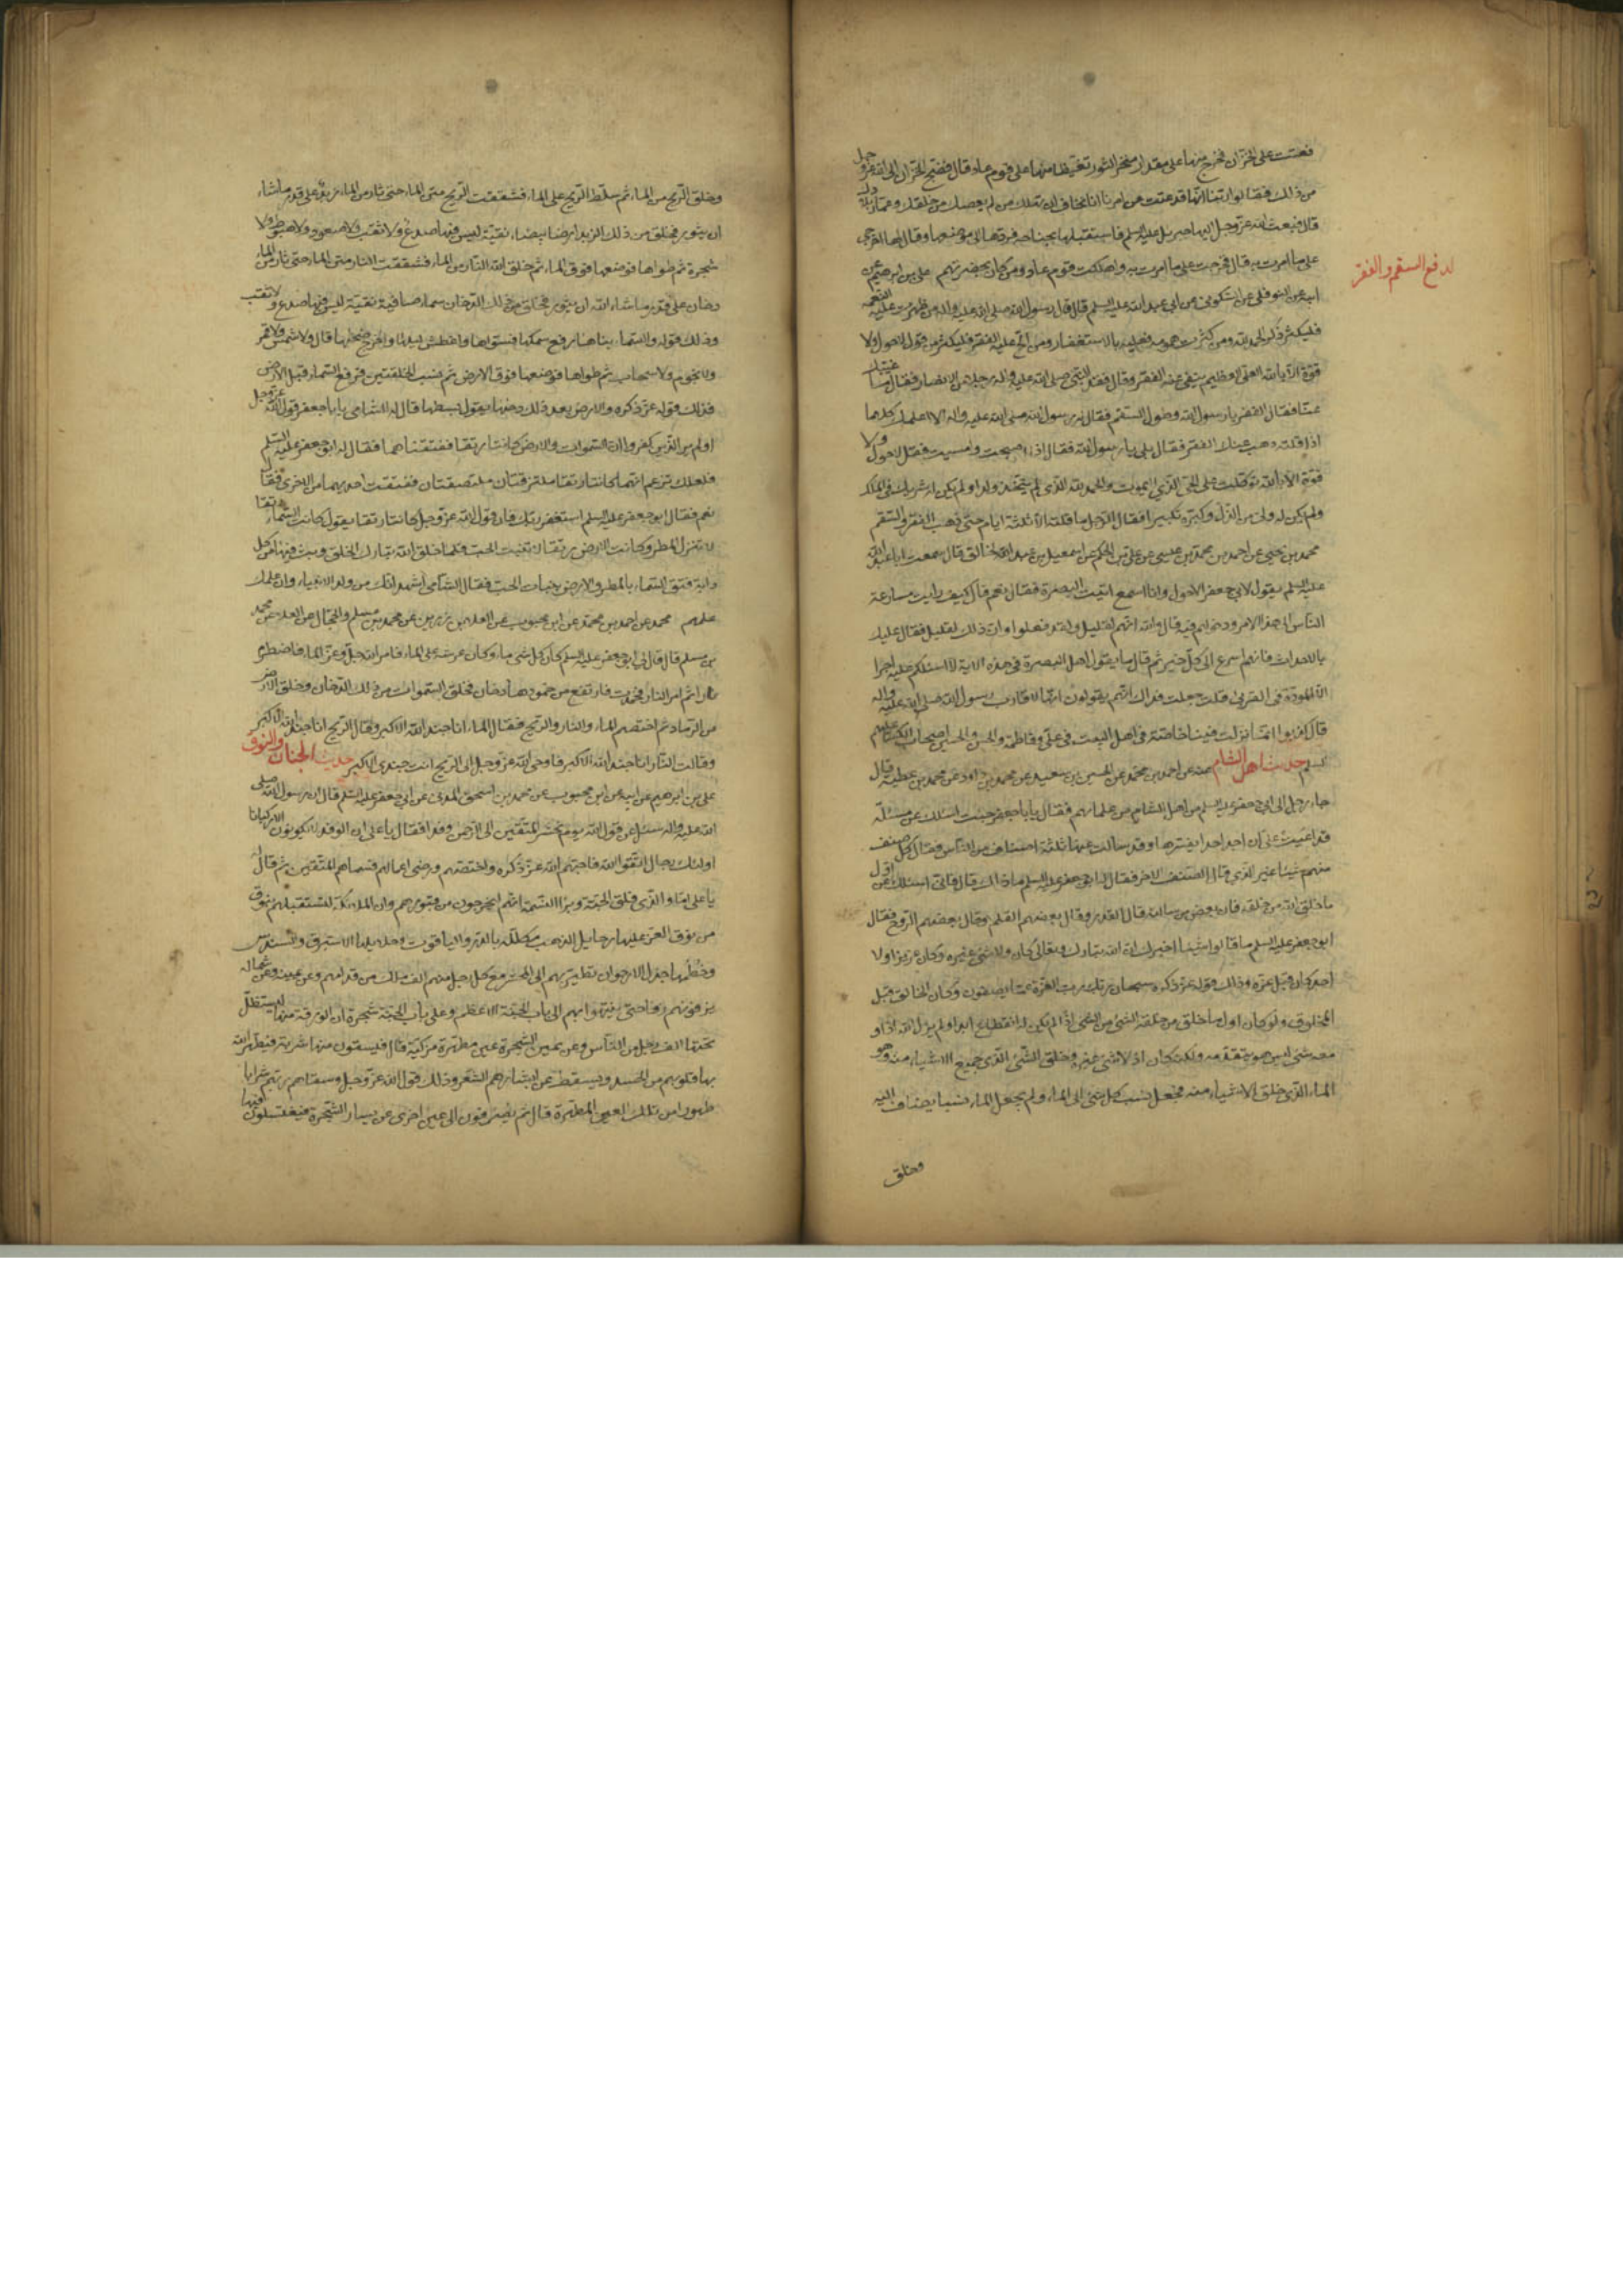 فعتت على الخزان فخرج منها على مقدار منخر الثور تغيظا منها على قوم عاد قال فضج الخزان الى الله عز وجل
من ذلك فقالوا ربنا انها قد عتت عن امرنا انا نخاف ان تهلك من لم يعصك من خلقك وعمار بلادك
قال فبعث الله عز وجل اليها جبرئيل عليه السلم فاستقبلها بجناحه فردها الى موضعها وقال لها اخرجي
على ما امرت به قال فخرجت على ما امرت به واهلكت قوم عاد ومن كان بحضرتهم على بن ابرهيم عن
ابيه عن النوفلي عن السكوني عن ابي عبد الله عليه السلم قال قال رسول الله صلى الله عليه واله من ظهرت عليه النعمة
فليكثر ذكر الحمد لله ومن كثرت همومه فعليه بالاستغفار ومن الح عليه الفقر فليكثر من قول لا حول ولا
قوة الا بالله العلى العظيم ينفى عنه الفقر وقال فقد النبي صلى الله عليه واله رجلا من الانصار فقال ما غيبك
عنا فقال الفقر يا رسول الله وطول السقم فقال له رسول الله صلى الله عليه واله الا اعلمك كلاما
اذا قلته ذهب عنك الفقر فقال بلى يا رسول الله فقال اذا اصبحت وامسيت فقل لا حول ولا
قوة الا بالله توكلت على الحي الذي لا يموت والحمد لله الذي لم يتخذ ولدا ولم يكن له شريك في الملك
ولم يكن له ولى من الذل وكبره تكبيرا فقال الرجل ما قلته الا ثلثة ايام حتى ذهب الفقر والسقم
محمد بن يحيى عن احمد بن محمد بن عيسى عن على بن الحكم عن اسمعيل بن عبد الخالق قال سمعت ابا عبد الله
عليه السلم يقول لابي جعفر الاحول وانا اسمع اتيت البصرة فقال نعم قال كيف رايت مسارعة
الناس الى هذا الامر ودخولهم فيه قال والله انهم لقليل ولقد فعلوا وان ذلك لقليل فقال عليك
بالاحداث فانهم اسرع الى كل خير ثم قال ما يقول اهل البصرة في هذه الاية لا اسئلكم عليه اجرا
الا المودة في القربى قلت جعلت فداك انهم يقولون انها لاقارب رسول الله صلى الله عليه واله
قال كذبوا انما نزلت فينا خاصة في اهل البيت في على وفاطمة والحسن والحسين اصحاب الكساء عليهم
السلم حديث اهل الشام عنه عن احمد بن محمد عن الحسين بن سعيد عن محمد بن داود عن محمد بن عطية قال
جاء رجل الى ابي جعفر عليه السلم من اهل الشام من علمائهم فقال يا با جعفر جئت اسئلك عن مسئلة
قد اعيت على ان اجد احدا يفسرها وقد سالت عنها ثلثة اصناف من الناس فقال كل صنف
منهم شيئا غير الذي قال الصنف الاخر فقال له ابو جعفر عليه السلم ما ذاك قال فاني اسئلك عن اول
ما خلق الله من خلقه فان بعض من سالته قال القدر وقال بعضهم القلم وقال بعضهم الروح فقال
ابو جعفر عليه السلم ما قالوا شيئا اخبرك ان الله تبارك وتعالى كان ولا شئ غيره وكان عزيزا ولا
احد كان قبل عزه وذلك قوله عز ذكره سبحان ربك رب العزة عما يصفون وكان الخالق قبل
المخلوق ولو كان اول ما خلق من خلقه الشئ من الشئ اذا لم يكن له انقطاع ابدا ولم يزل الله اذا و
معه شئ ليس هو يتقدمه ولكنه كان اذ لا شئ غيره وخلق الشئ الذي جميع الاشياء منه وهو
الماء الذي خلق الاشياء منه فجعل نسب كل شئ الى الماء ولم يجعل للماء نسبا يضاف اليه
وخلق
لدفع السقم والفقر
وخلق الريح من الماء ثم سلط الريح على الماء فشققت الريح متن الماء حتى ثار من الماء زبد على قدر ما شاء
ان يثور فخلق من ذلك الزبد ارضا بيضاء نقية ليس فيها صدع ولا ثقب ولا صعود ولا هبوط ولا
شجرة ثم طواها فوضعها فوق الماء ثم خلق الله النار من الماء فشققت النار متن الماء حتى ثار من الماء
دخان على قدر ما شاء الله ان يثور فخلق من ذلك الدخان سماء صافية نقية ليس فيها صدع ولا ثقب
وذلك قوله والسماء بناها رفع سمكها فسواها واغطش ليلها واخرج ضحيها قال ولا شمس ولا قمر
ولا نجوم ولا سحاب ثم طواها فوضعها فوق الارض ثم نسب الخلقتين فرفع السماء قبل الارض
فذلك قوله عز ذكره والارض بعد ذلك دحيها يقول بسطها قال له الشامي يا با جعفر قول الله عز وجل
اولم ير الذين كفروا ان السموات والارض كانتا رتقا ففتقناهما فقال له ابو جعفر عليه السلم
فلعلك تزعم انهما كانتا رتقا ملتزقتان ملتصقتان ففتقت احديهما من الاخرى فقال
نعم فقال ابو جعفر عليه السلم استغفر ربك فان قول الله عز وجل كانتا رتقا يقول كانت السماء رتقا
لا تنزل المطر وكانت الارض رتقا لا تنبت الحب فلما خلق الله تبارك الخلق وبث فيها من كل
دابة فتق السماء بالمطر والارض بنبات الحب فقال الشامي اشهد انك من ولد الانبياء وان علمك
علمهم محمد عن احمد بن محمد عن ابن محبوب عن العلاء بن رزين عن محمد بن مسلم والحجال عن العلاء عن محمد
بن مسلم قال قال لي ابو جعفر عليه السلم كان كل شئ ماء وكان عرشه على الماء فامر الله جل وعز الماء فاضطرم
نارا ثم امر النار فخمدت فارتفع من خمودها دخان فخلق السموات من ذلك الدخان وخلق الارض
من الرماد ثم اختصم الماء والنار والريح فقال الماء انا جند الله الاكبر وقال الريح انا جند الله الاكبر
وقالت النار انا جند الله الاكبر فاوحى الله عز وجل الى الريح انت جندي الاكبر حديث الجنان والنوق
على بن ابرهيم عن ابيه عن ابن محبوب عن محمد بن اسحق المدني عن ابي جعفر عليه السلم قال ان رسول الله صلى
الله عليه واله سئل عن قول الله يوم نحشر المتقين الى الرحمن وفدا فقال يا على ان الوفد لا يكونون الا ركبانا
اولئك رجال اتقوا الله فاحبهم الله عز ذكره واختصهم ورضى اعمالهم فسماهم المتقين ثم قال له
يا على اما والذي فلق الحبة وبرا النسمة انهم ليخرجون من قبورهم وان الملائكة لتستقبلهم بنوق
من نوق العز عليها رحايل الذهب مكللة بالدر والياقوت وجلايلها الاستبرق والسندس
وخطمها جدل الارجوان تطير بهم الى المحشر مع كل رجل منهم الف ملك من قدامه وعن يمينه وعن شماله
يزفونهم زفا حتى ينتهوا بهم الى باب الجنة الاعظم وعلى باب الجنة شجرة ان الورقة منها ليستظل
تحتها الف رجل من الناس وعن يمين الشجرة عين مطهرة مزكية قال فيسقون منها شربة فيطهر الله
بها قلوبهم من الحسد ويسقط عن ابشارهم الشعر وذلك قول الله عز وجل وسقاهم ربهم شرابا
طهورا من تلك العين المطهرة قال ثم ينصرفون الى عين اخرى عن يسار الشجرة فيغتسلون فيها